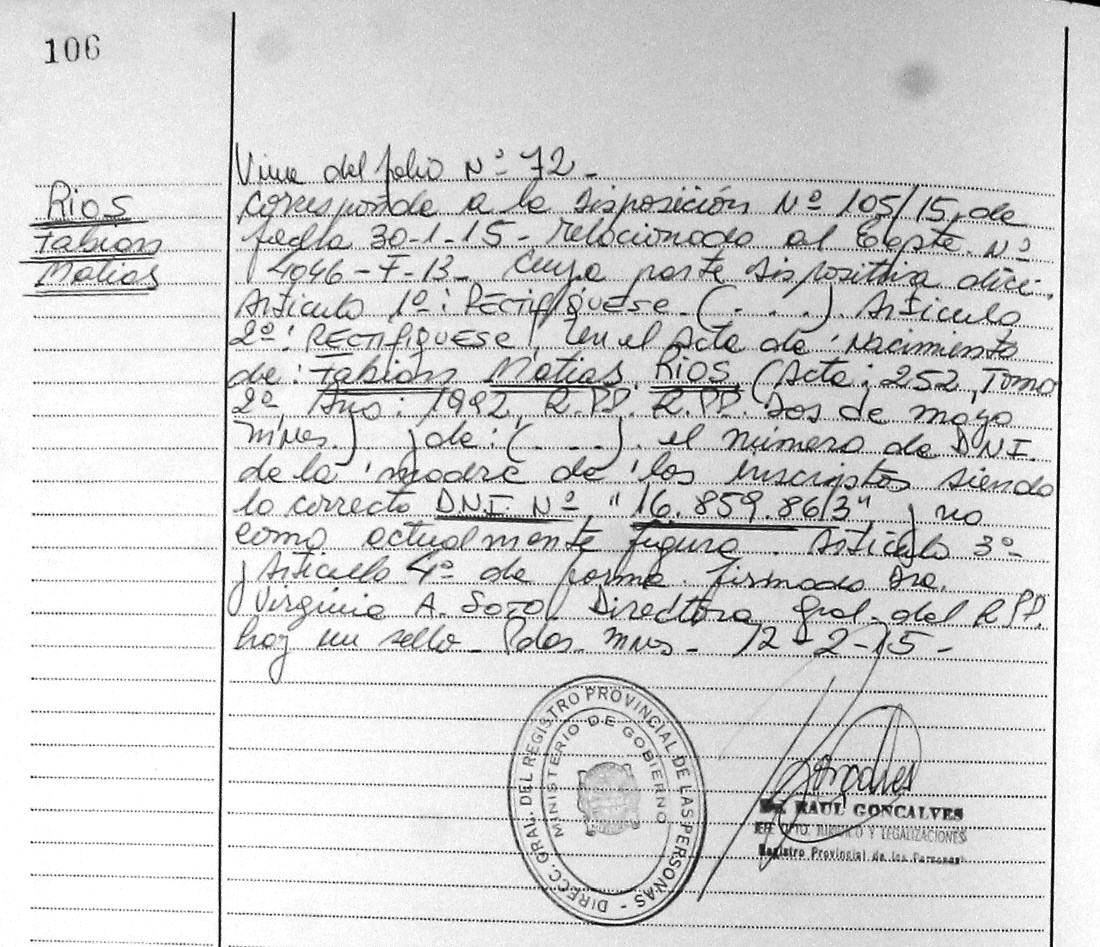 106
Rios
Fabián
Matias
Viene del folio Nº 72 -
Corresponde a la Disposición Nº 105/15, de
fecha 30-1-15 - Relacionado al Expte. Nº
4946 - F - 13 - Cuya parte dispositiva dice:
Artículo 1º: RECTIFÍQUESE. (. . .). Artículo
2º: RECTIFÍQUESE, en el Acta de Nacimiento
de: Fabián Matias Rios (Acta: 252, Tomo
2º, Año: 1992, R.PP. R.PP. Dos de mayo
Mnes.) y de: (. . . .). el número de DNI.
de la madre de los inscriptos siendo
lo correcto DNI Nº "16.859.863" y no
como actualmente figura. Artículo 3º
y Artículo 4º de forma. Firmado Dra.
Virginia A. Soto, Directora Gral. del R.PP.
hay un sello - Pdas. Mnes - 12 - 2 - 15 -
DIRECC. GRAL. DEL REGISTRO PROVINCIAL DE LAS PERSONAS -
MINISTERIO DE GOBIERNO
RAUL GONCALVES
JEFE DPTO. JURIDICO Y LEGALIZACIONES
Registro Provincial de las Personas